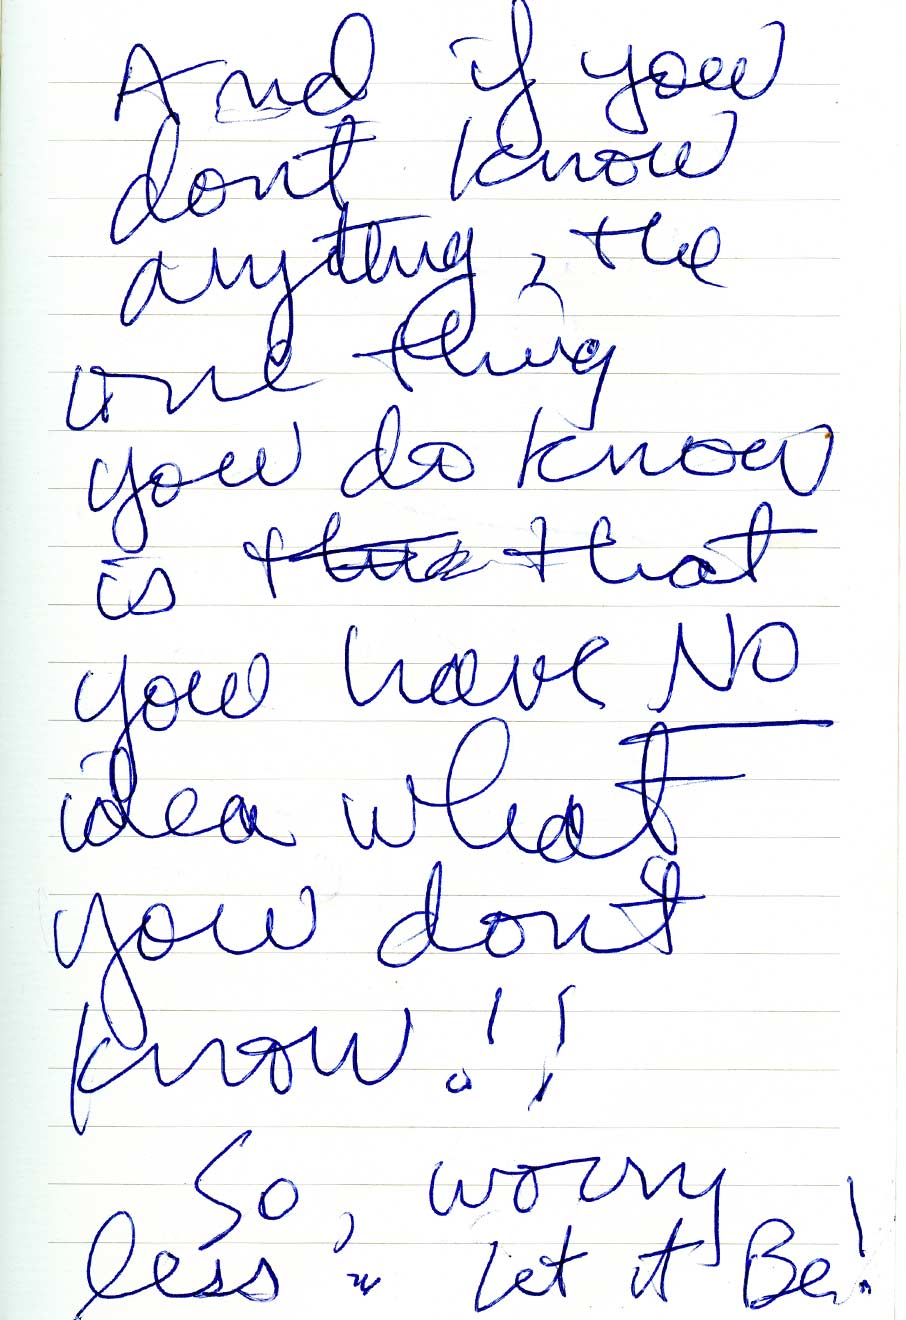 And if you
dont know
anything, the
one thing
you do know
is that
you have NO
idea what
you don't
know!!
So, worry
less ~ let it Be!